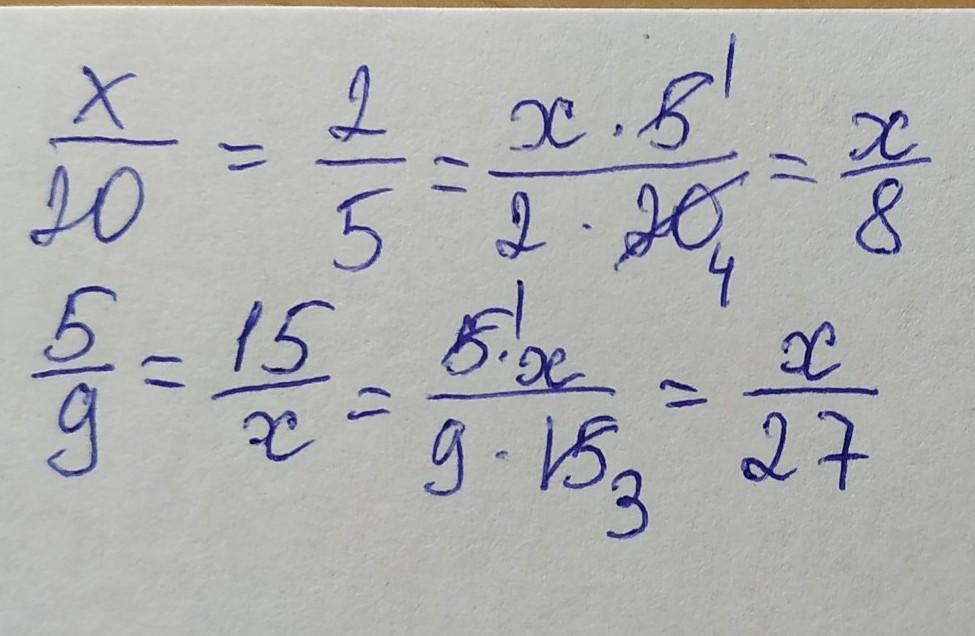 x/20 = 2/5 = x · 5 1 / 2 · 20 4 = x/8
5/9 = 15/x = 5 1 · x / 9 · 15 3 = x/27